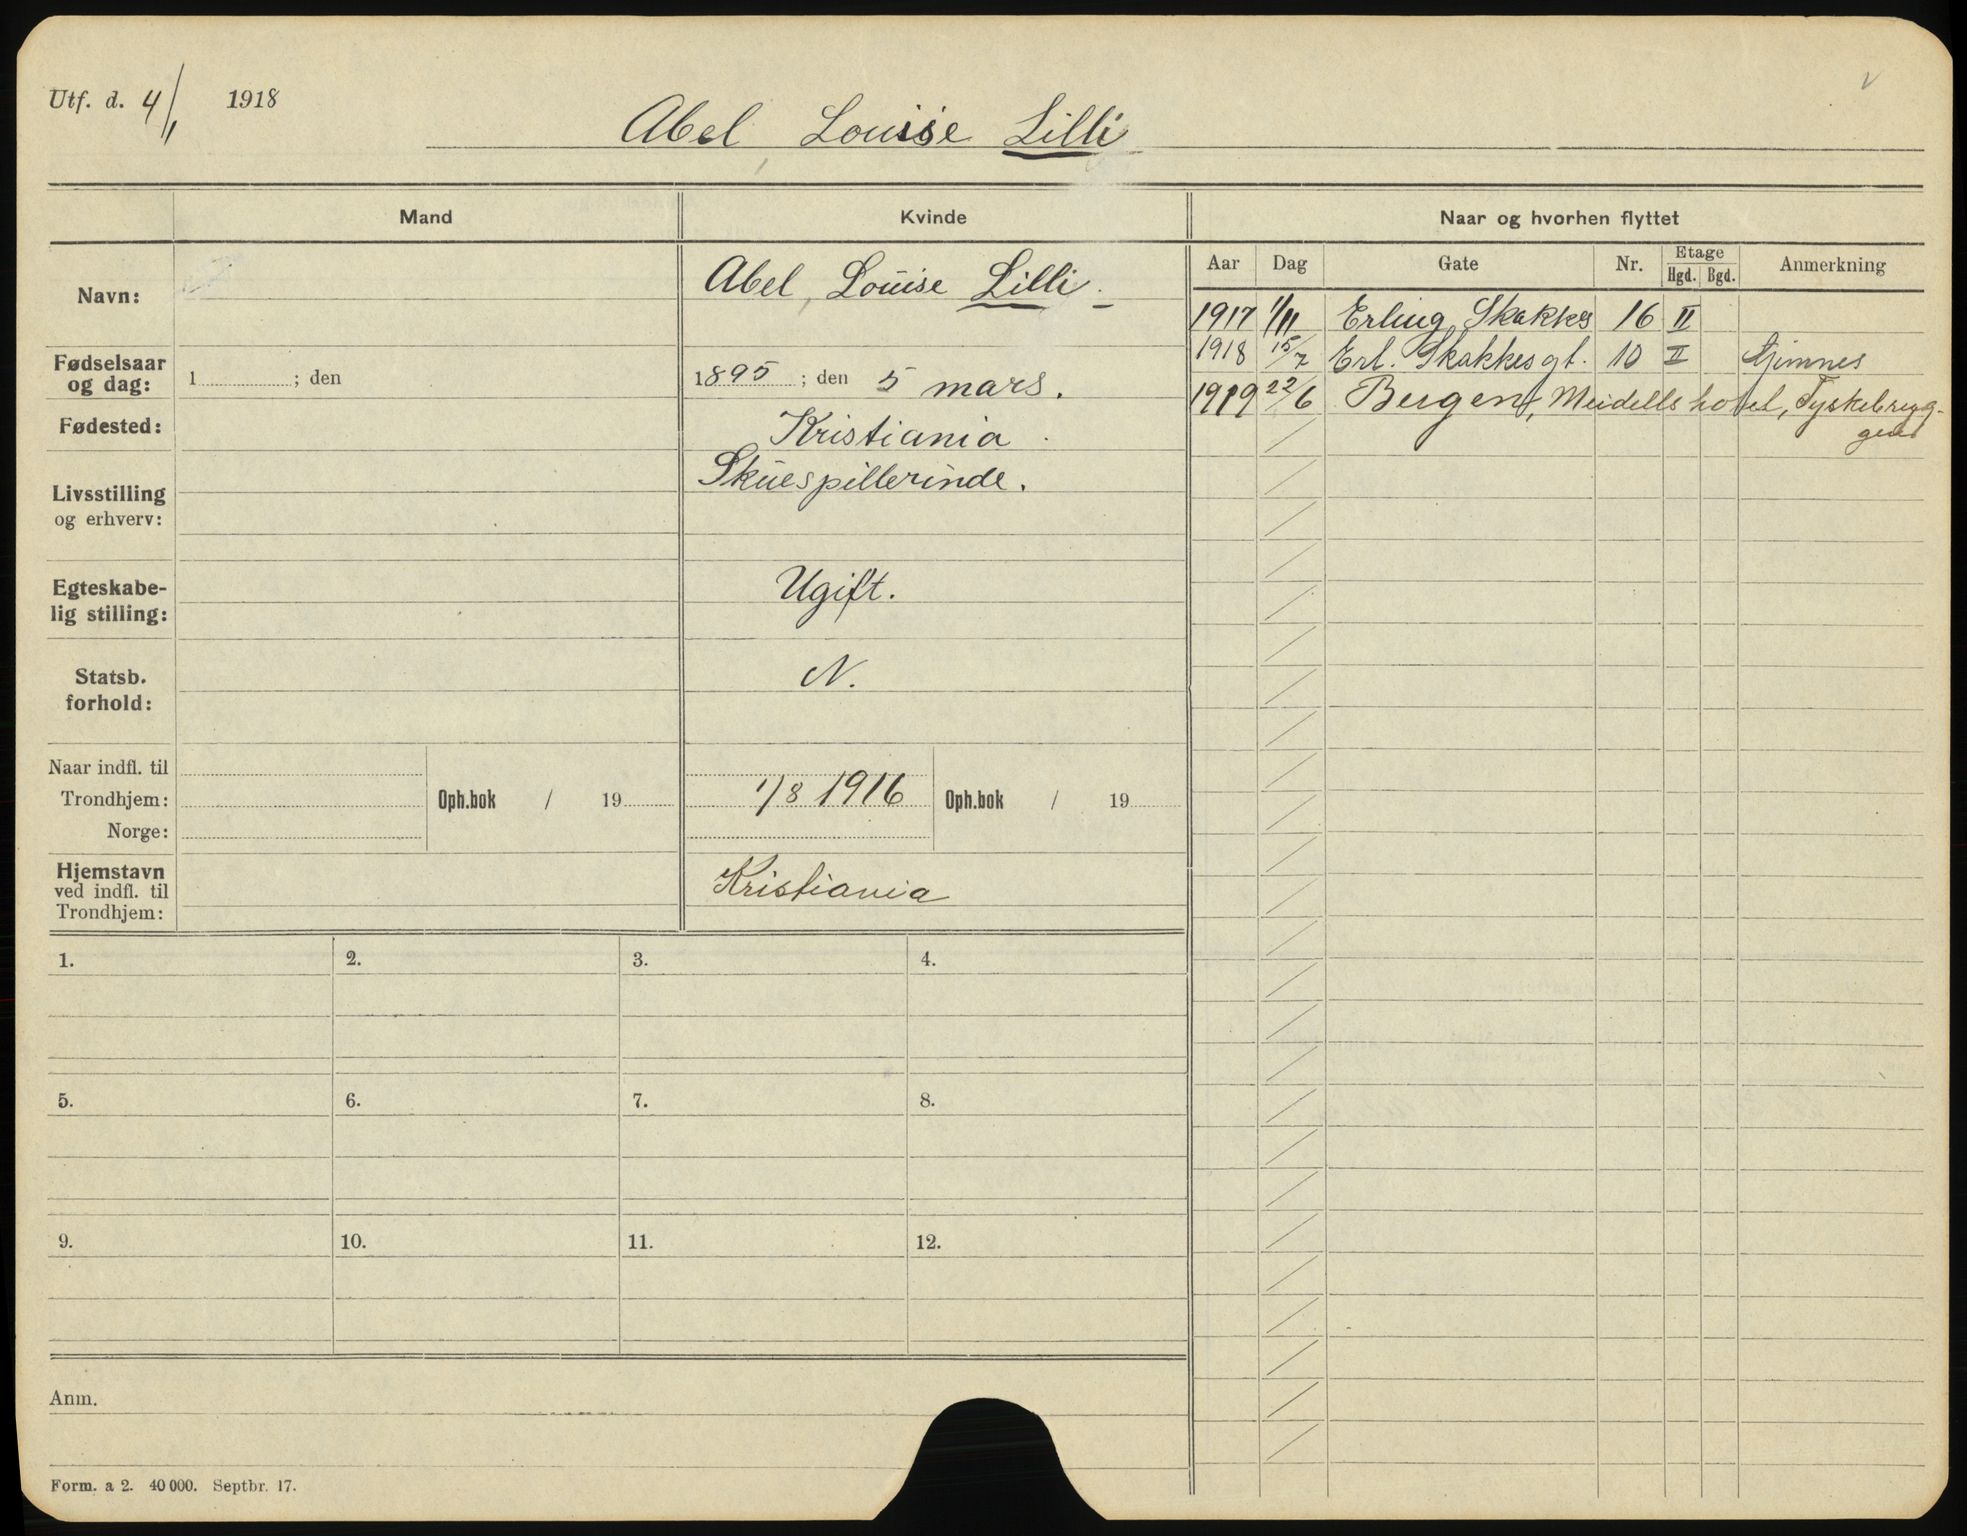 Utf. d. 4/1 1918
Abel, Louise Lilli
Mand Kvinde Naar og hvorhen flyttet
Aar Dag Gate Nr. Etage Hgd. Bgd. Anmerkning
Navn: Abel, Louise Lilli.
1917 1/11 Erling Skakkes 16 II
1918 15/7 Erl. Skakkesgt. 10 II Gjimnes
1919 22/6 Bergen, Meidells hotel, Tyskebryg-
gen
Fødselsaar
og dag: 1 ; den 1895 ; den 5 mars.
Fødested: Kristiania.
Livsstilling Skuespillerinde.
og erhverv:
Egteskabe- Ugift.
lig stilling:
Statsb. N.
forhold:
Naar indfl. til
Trondhjem: Oph.bok / 19 1/8 1916 Oph.bok / 19
Norge:
Hjemstavn Kristiania
ved indfl. til
Trondhjem:
1. 2. 3. 4.
5. 6. 7. 8.
9. 10. 11. 12.
Anm.
Form. a 2. 40 000. Septbr. 17.